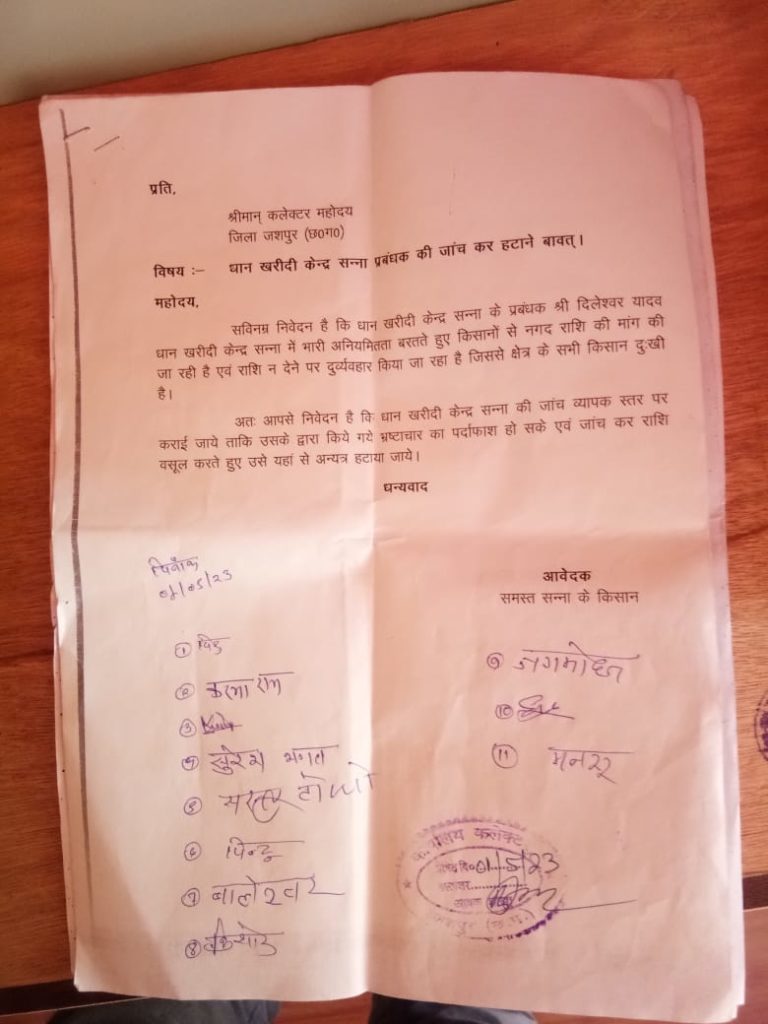 प्रति,
श्रीमान् कलेक्टर महोदय
जिला जशपुर (छ0ग0)
विषय :– धान खरीदी केन्द्र सन्ना प्रबंधक की जांच कर हटाने बावत्।
महोदय,
सविनम्र निवेदन है कि धान खरीदी केन्द्र सन्ना के प्रबंधक श्री दिलेश्वर यादव
धान खरीदी केन्द्र सन्ना में भारी अनियमितता बरतते हुए किसानों से नगद राशि की मांग की
जा रही है एवं राशि न देने पर दुर्व्यवहार किया जा रहा है जिससे क्षेत्र के सभी किसान दुःखी
है।
अतः आपसे निवेदन है कि धान खरीदी केन्द्र सन्ना की जांच व्यापक स्तर पर
कराई जाये ताकि उसके द्वारा किये गये भ्रष्टाचार का पर्दाफाश हो सके एवं जांच कर राशि
वसूल करते हुए उसे यहां से अन्यत्र हटाया जाये।
धन्यवाद
दिनाँक
01/05/23
आवेदक
समस्त सन्ना के किसान
①
② करमा राम
③
④ सुरेश भगत
⑤
⑥ पिन्टू
⑦ बालेश्वर
⑧
⑨ जगमोहन
⑩
⑪
कलेक्ट
01/5/23
जशपुर (छ.ग.)